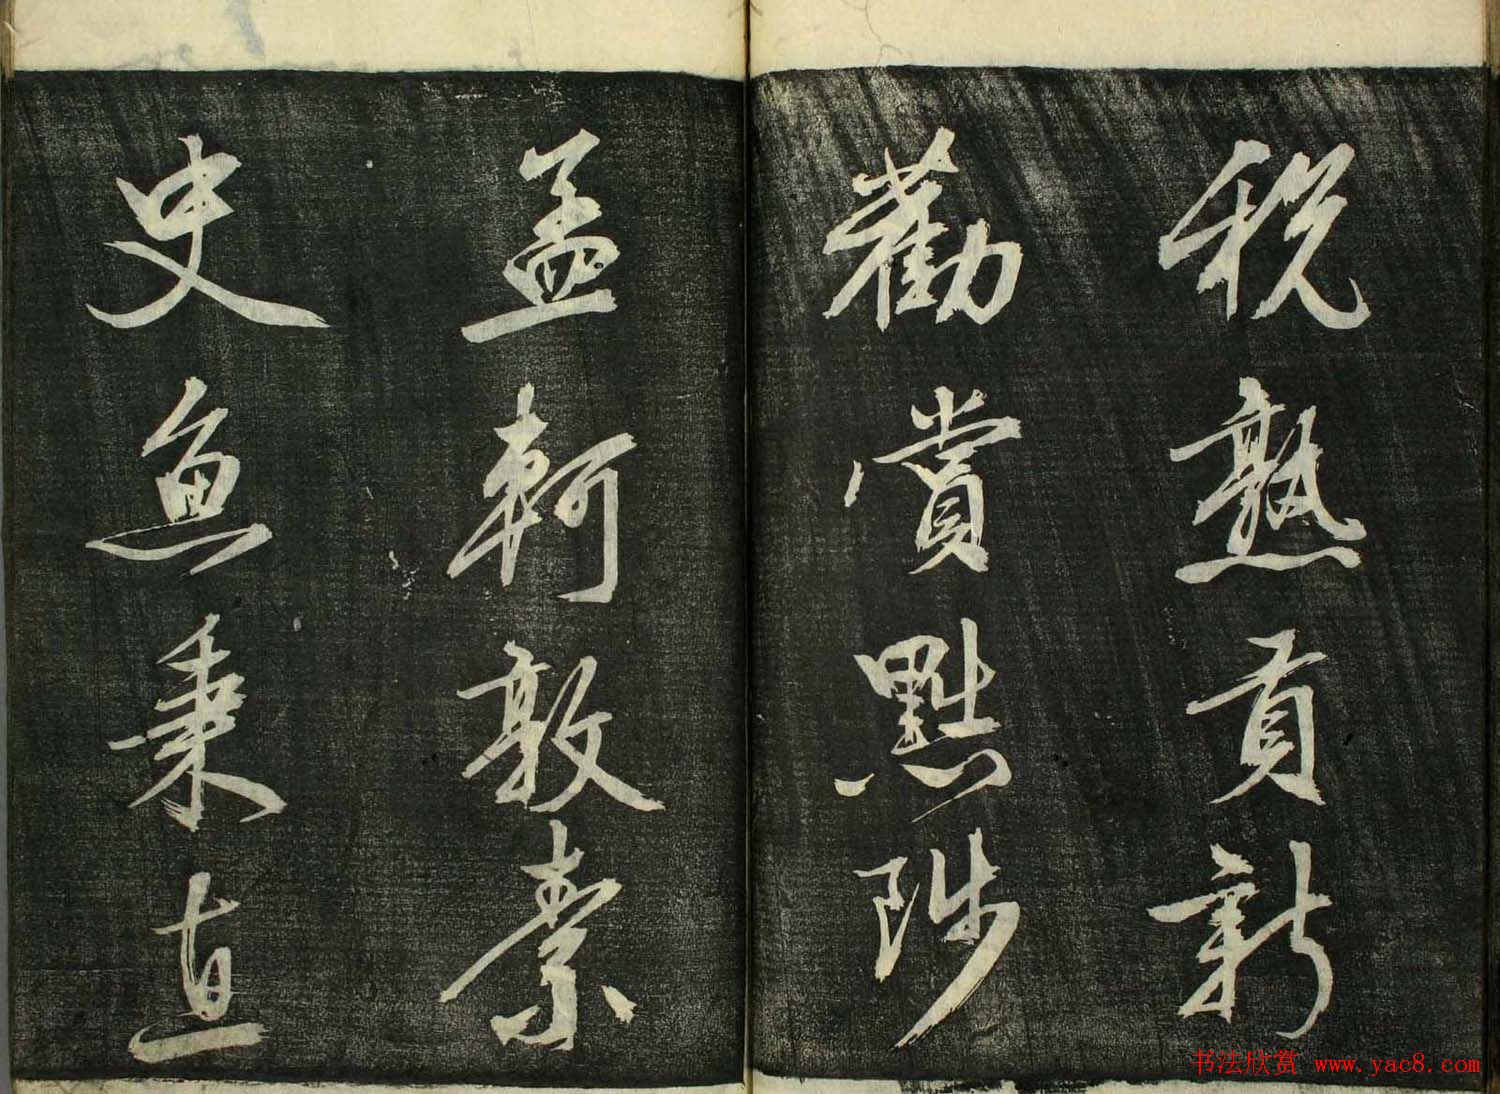 稅熟貢新
勸賞黜陟
孟軻敦素
史魚秉直
书法欣赏 www.yac8.com